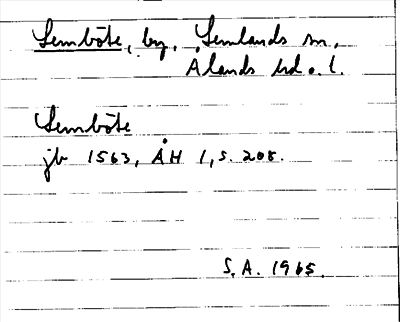 Lemböte, by, Lemlands sn,
Ålands hd o. l.
Lemböte
jb 1563, ÅH 1, s. 208.
S. A. 1965.